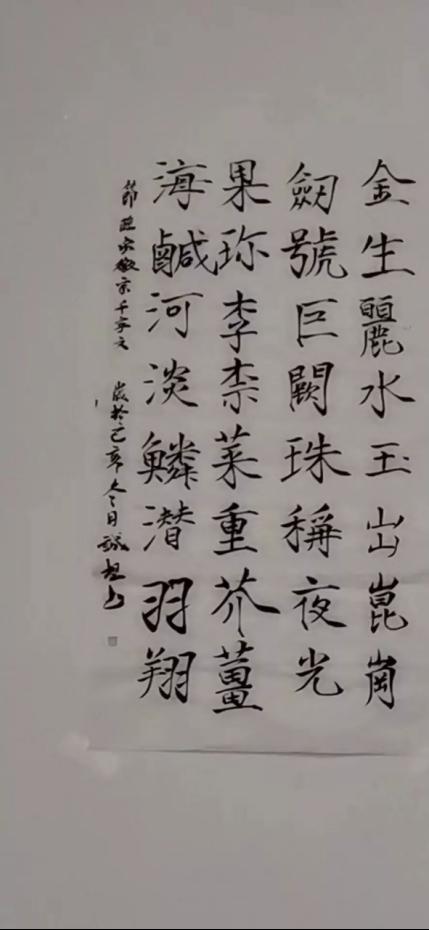 金生麗水玉出崑崗
劒號巨闕珠稱夜光
果珎李柰菜重芥薑
海鹹河淡鱗潜羽翔
節臨宋徽宗千字文 歲於己亥冬日